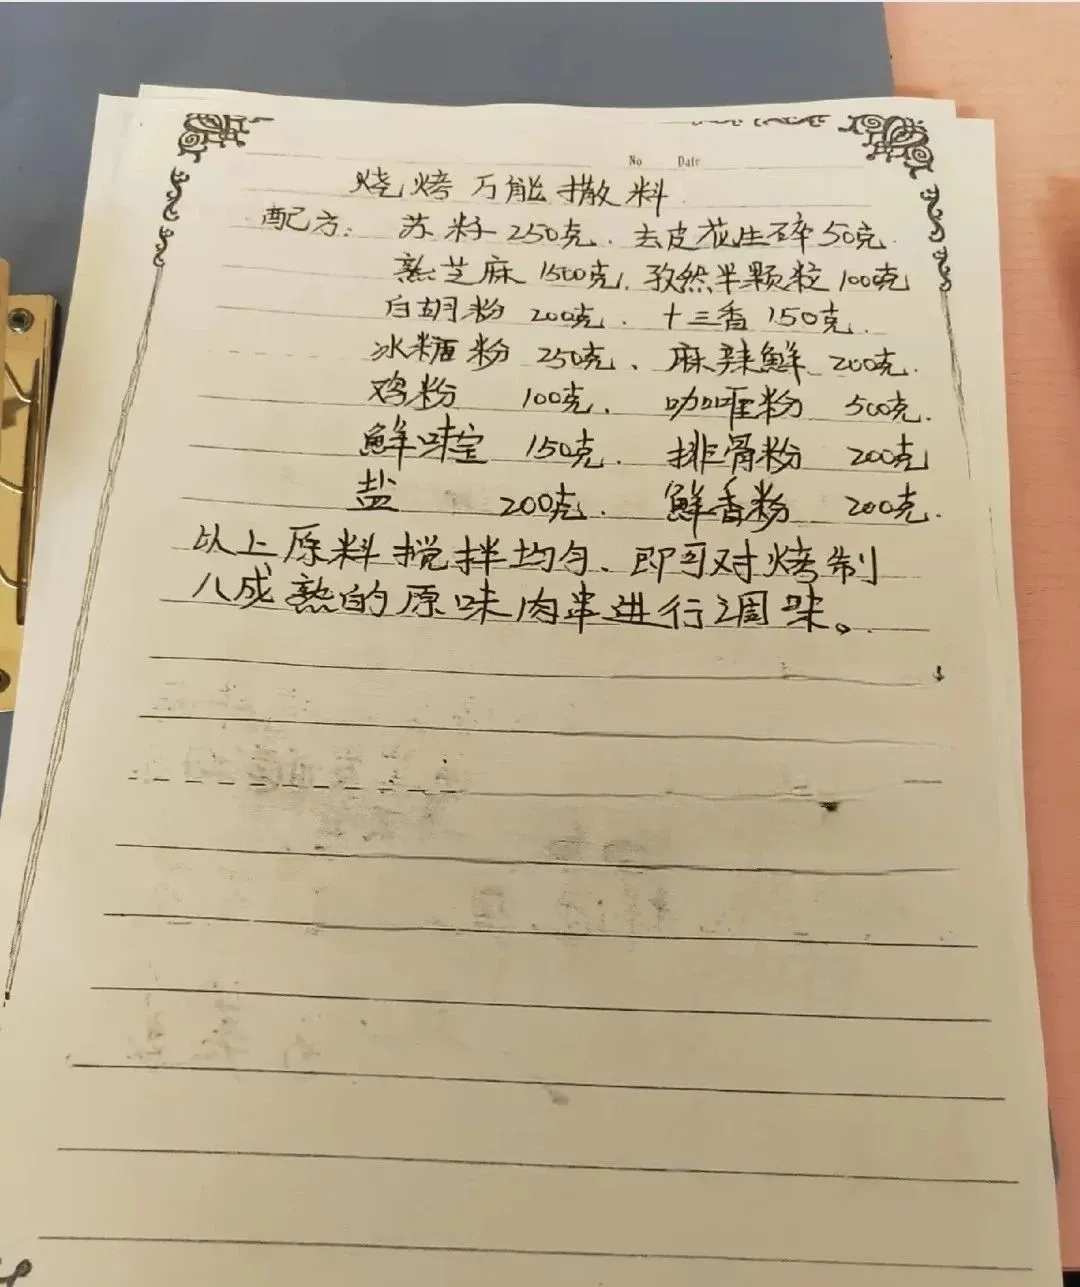 No Date
烧烤万能撒料
配方: 苏籽250克. 去皮花生碎50克.
熟芝麻1500克. 孜然半颗粒100克
白胡粉 200克. 十三香150克.
冰糖粉 250克、麻辣鲜 200克.
鸡粉 100克. 咖喱粉 500克.
鲜味宝 150克. 排骨粉 200克
盐 200克. 鲜香粉 200克.
以上原料搅拌均匀. 即可对烤制
八成熟的原味肉串进行调味。